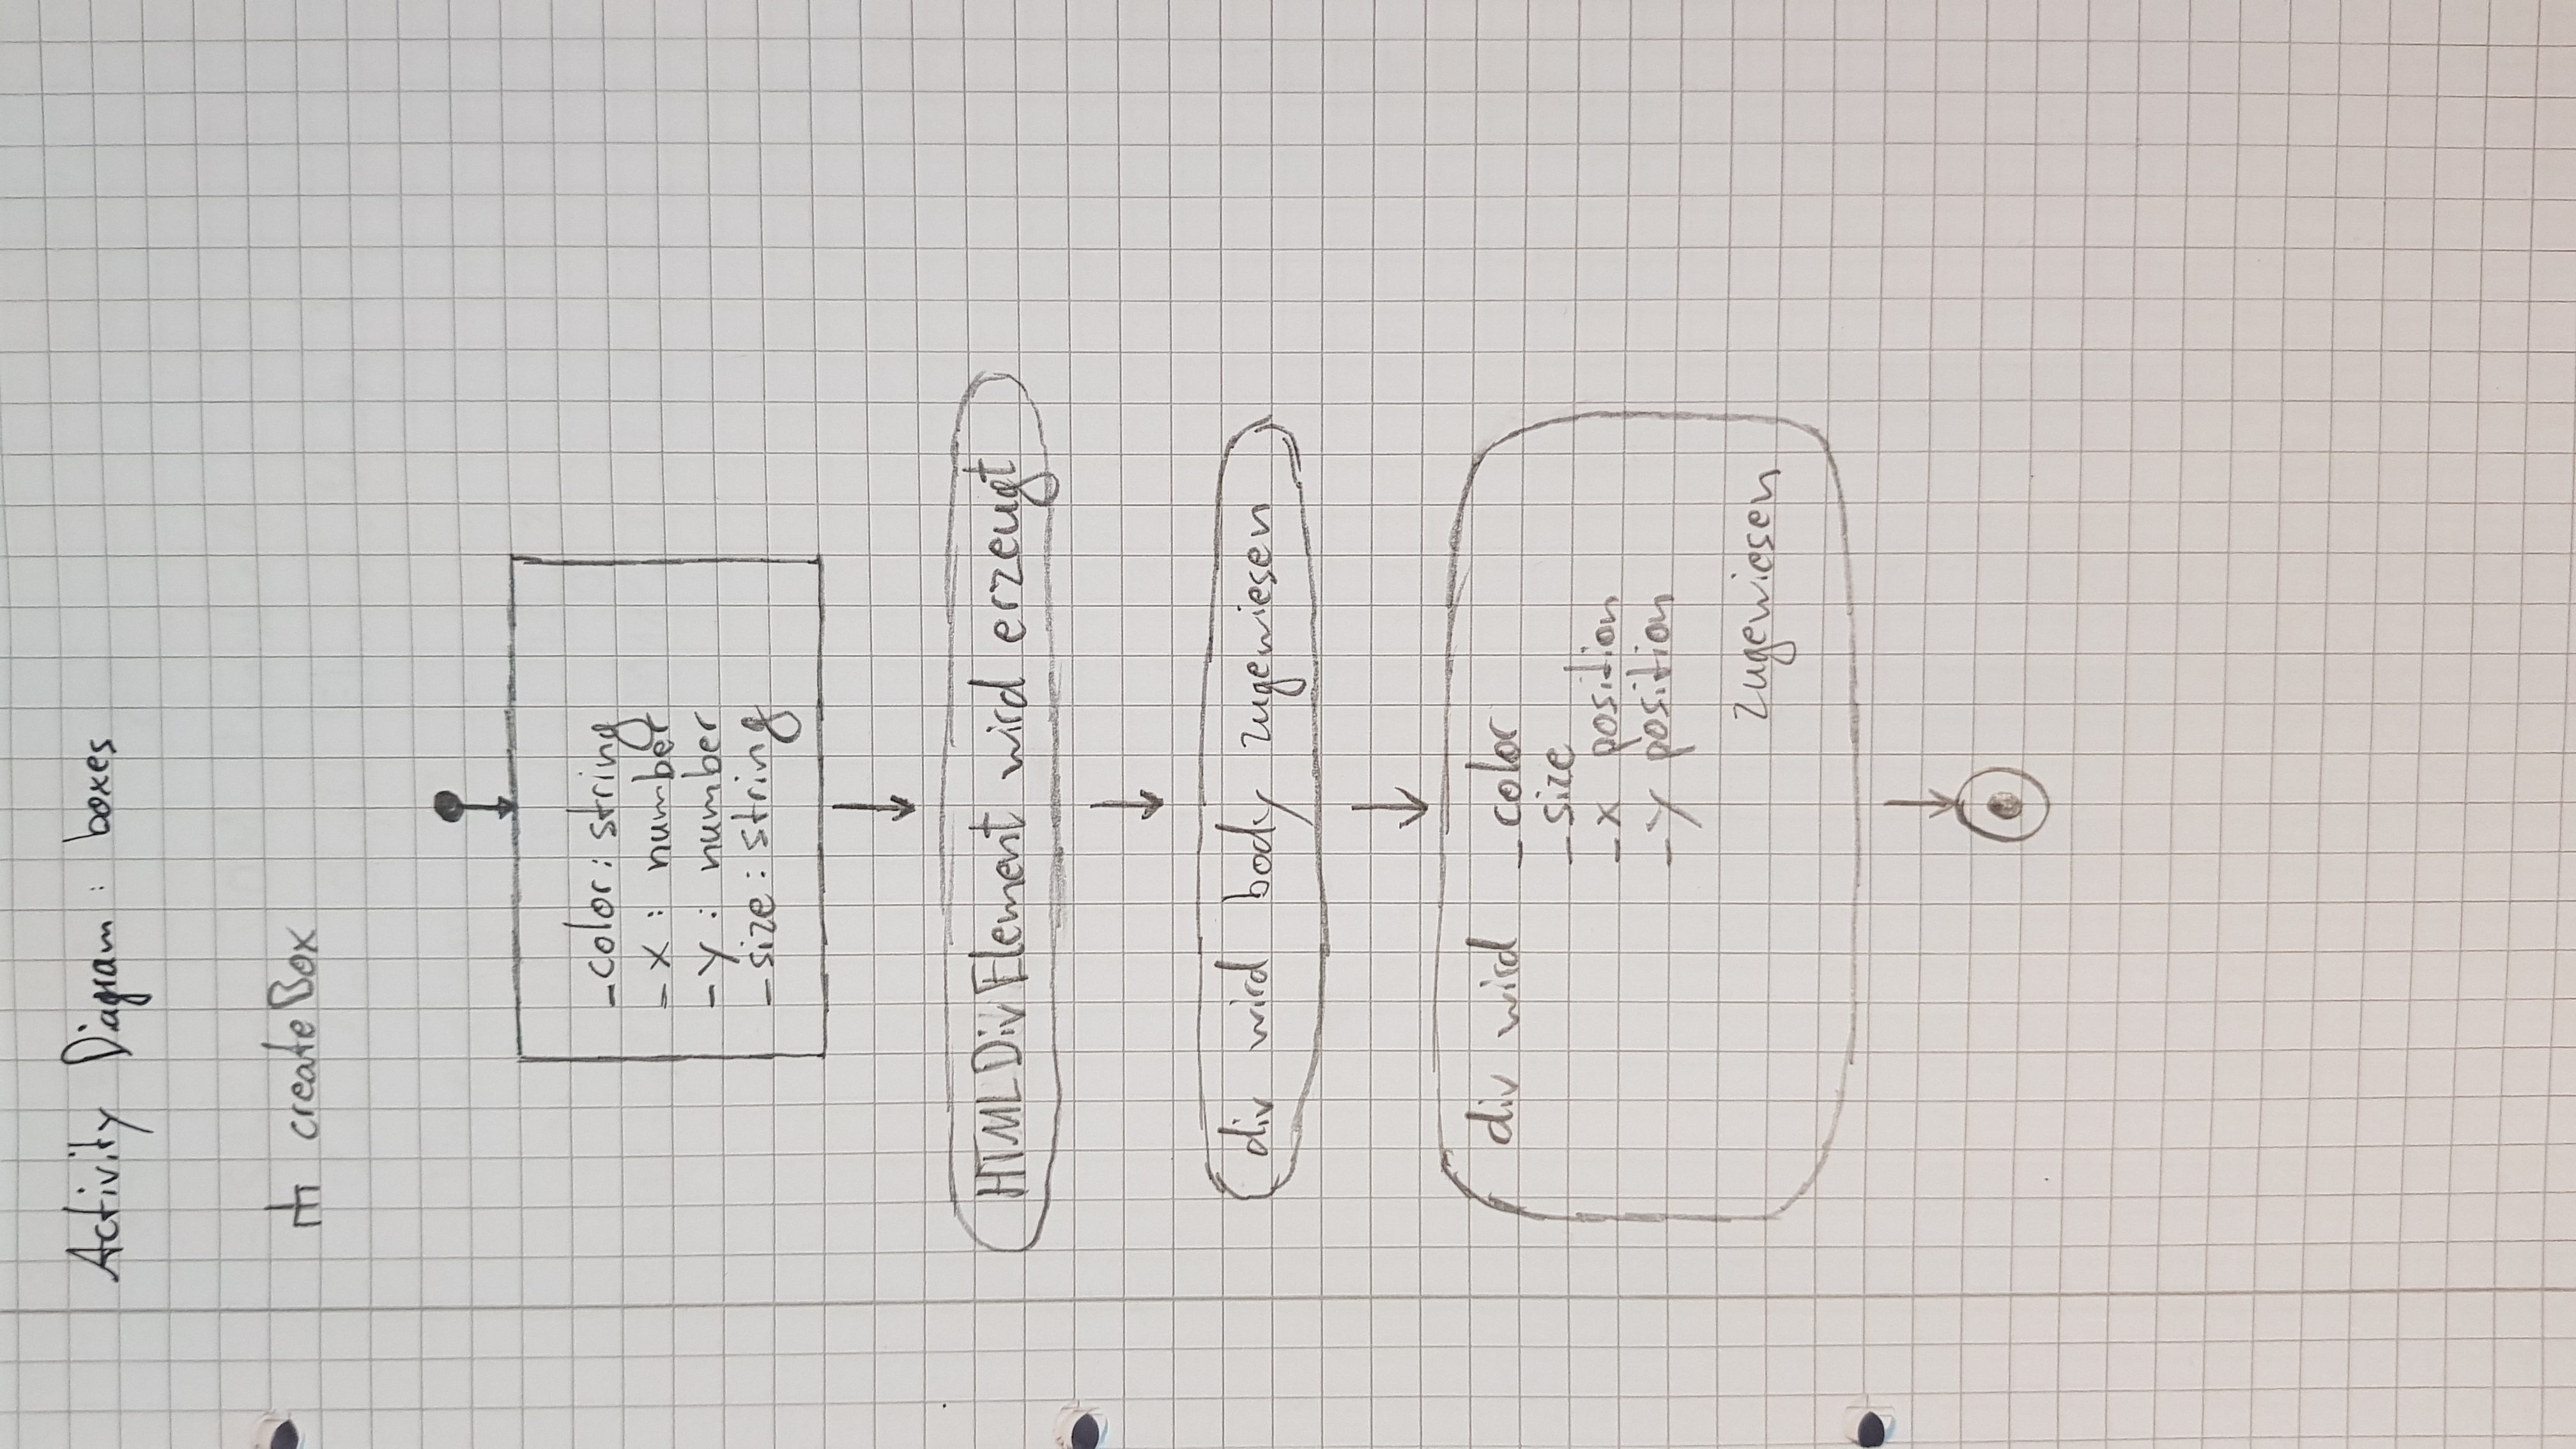 Activity Diagram: boxes
createBox
_color: string
_x: number
_y: number
_size: string
HTMLDivElement wird erzeugt
div wird body zugewiesen
div wird _color
_size
_x position
_y position
zugewiesen